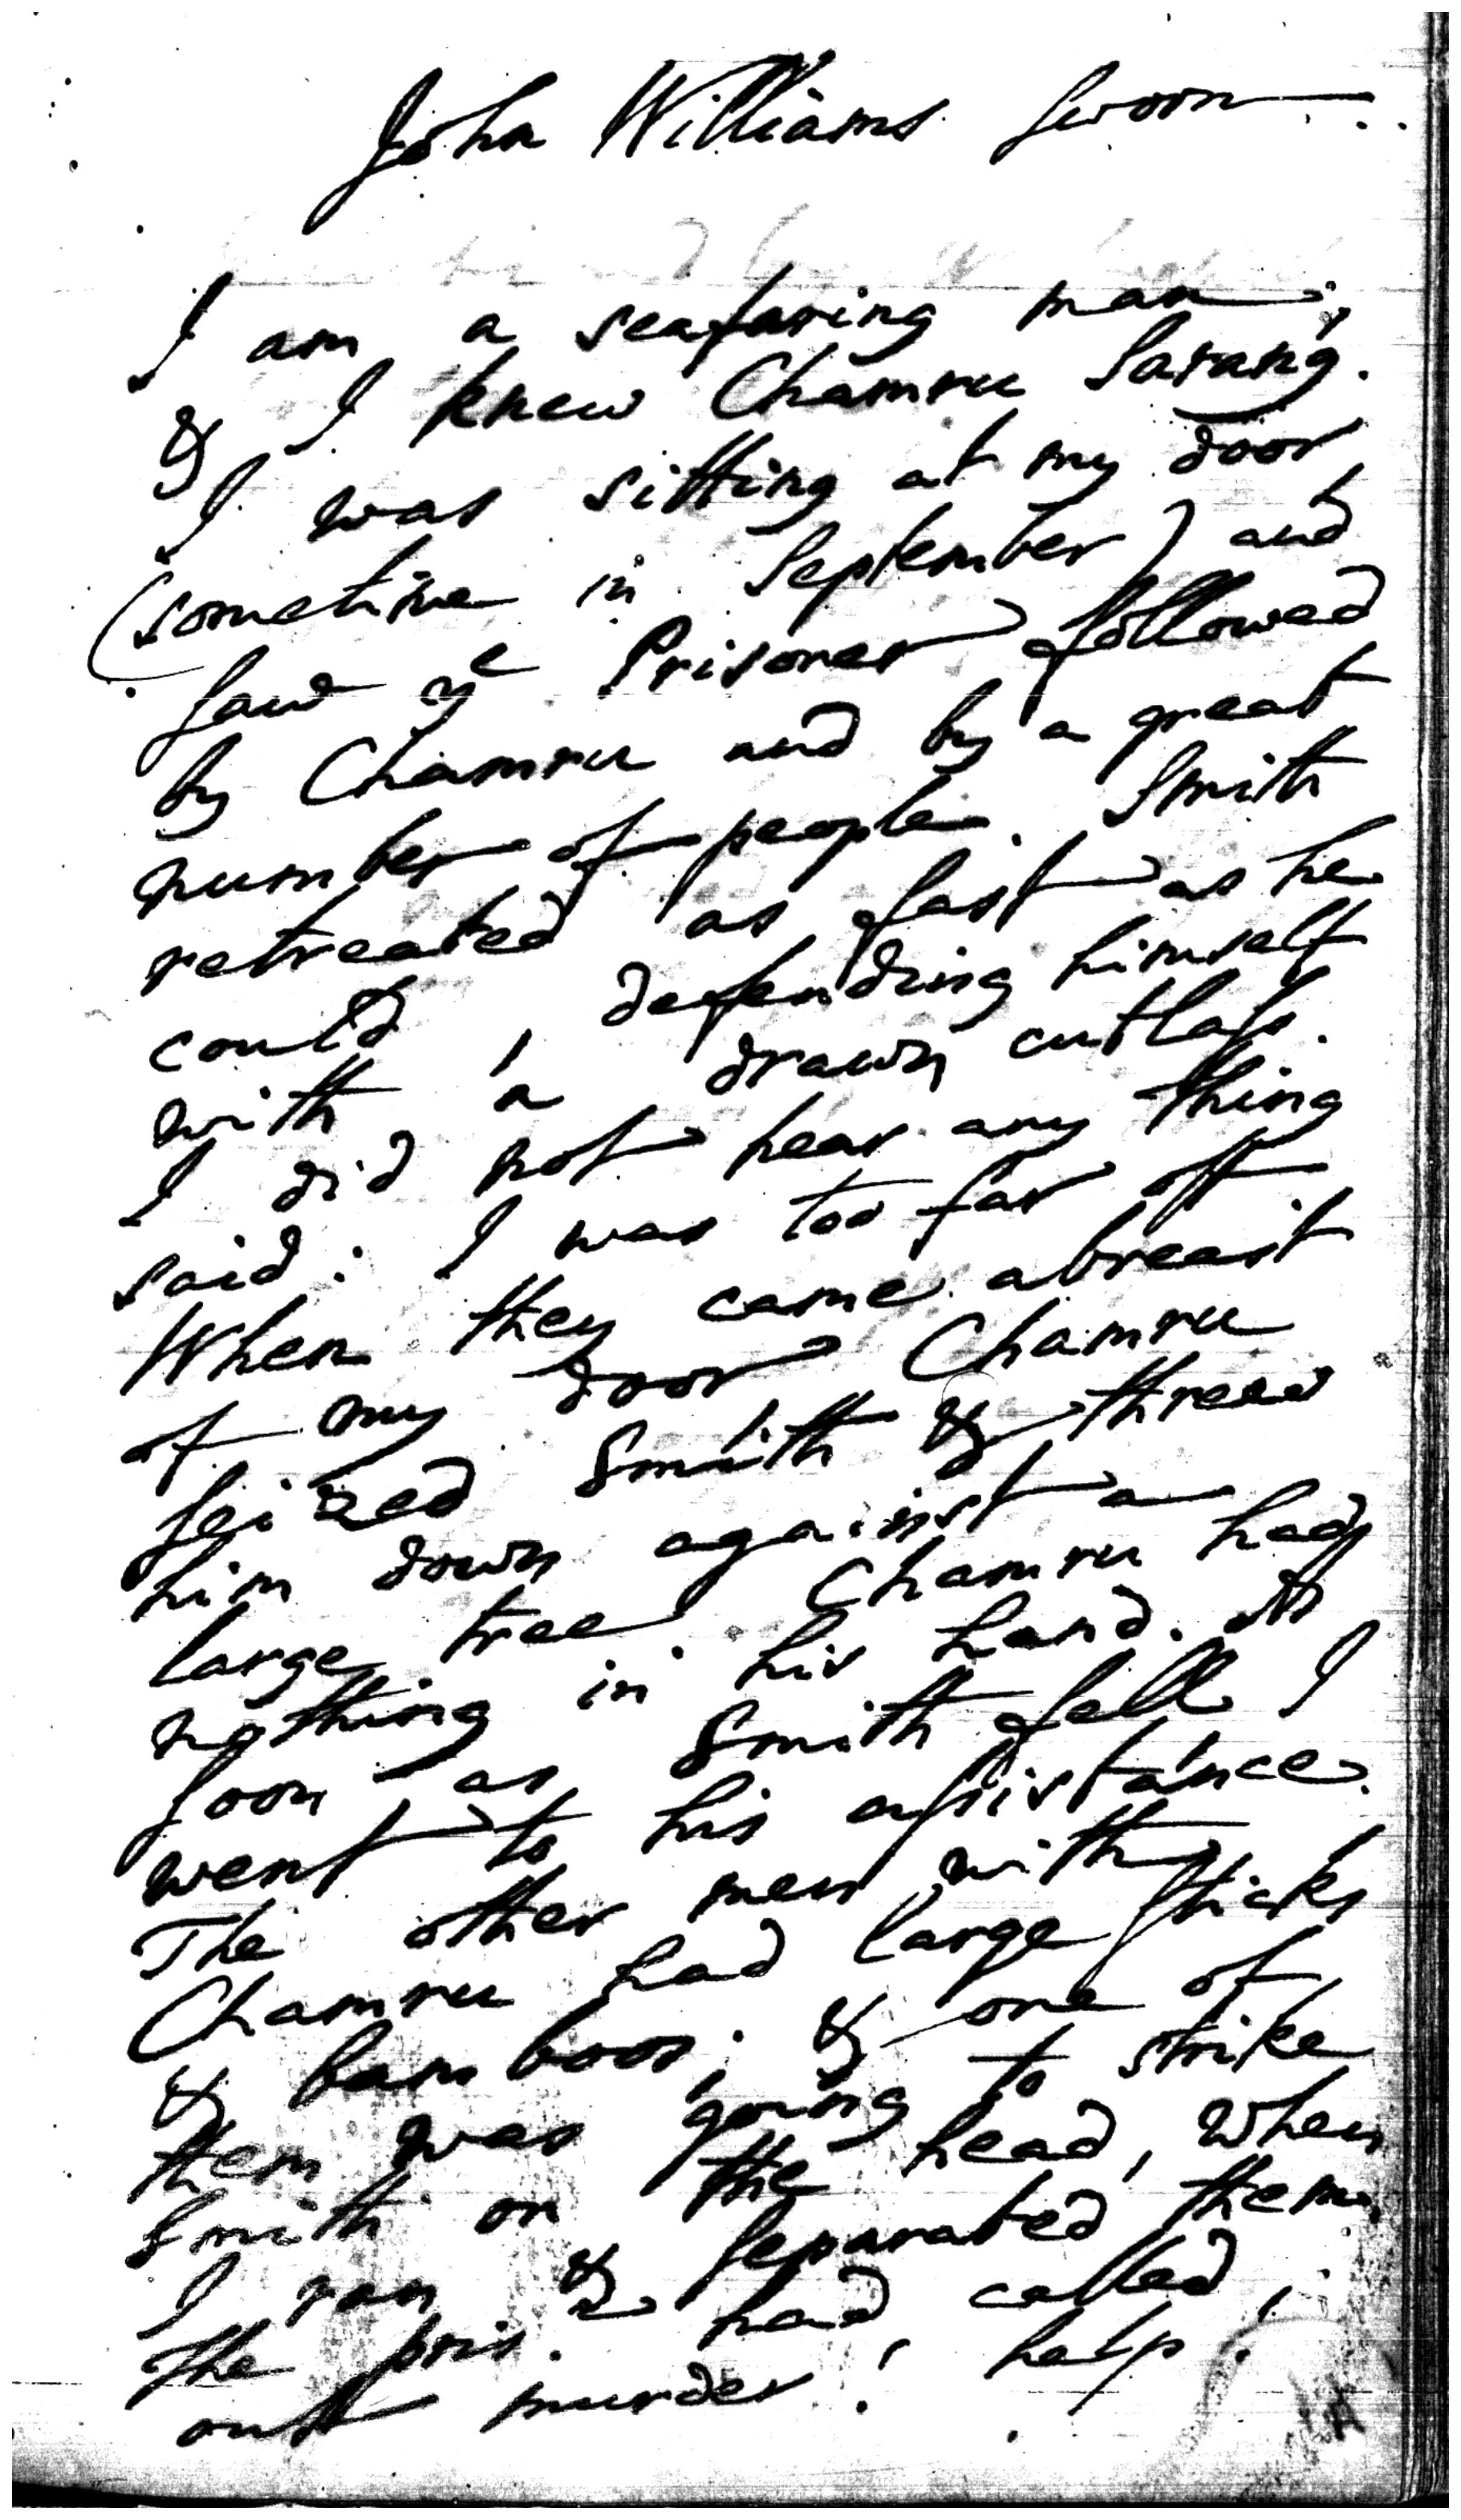 John Williams sworn
I am a seafaring man;
& I knew Chamru Sarang.
I was sitting at my door,
(sometime in September) and
saw yᵉ Prisoner followed
by Chamru and by a great
number of people. Smith
retreated as fast as he
could, defending himself
with a drawn cutlaſs.
I did not hear any thing
said: I was too far off
When they came abreast
of my door Chamru
seized Smith & threw
him down against a
large tree. Chamru had
nothing in his hand. As
soon as Smith fell I
went to his aſsistance.
The other men with
Chamru had large sticks
& bamboos; & one of
them was going to strike
Smith on the head, when
I ran & separated them,
The pris. had called,
out murder! help.